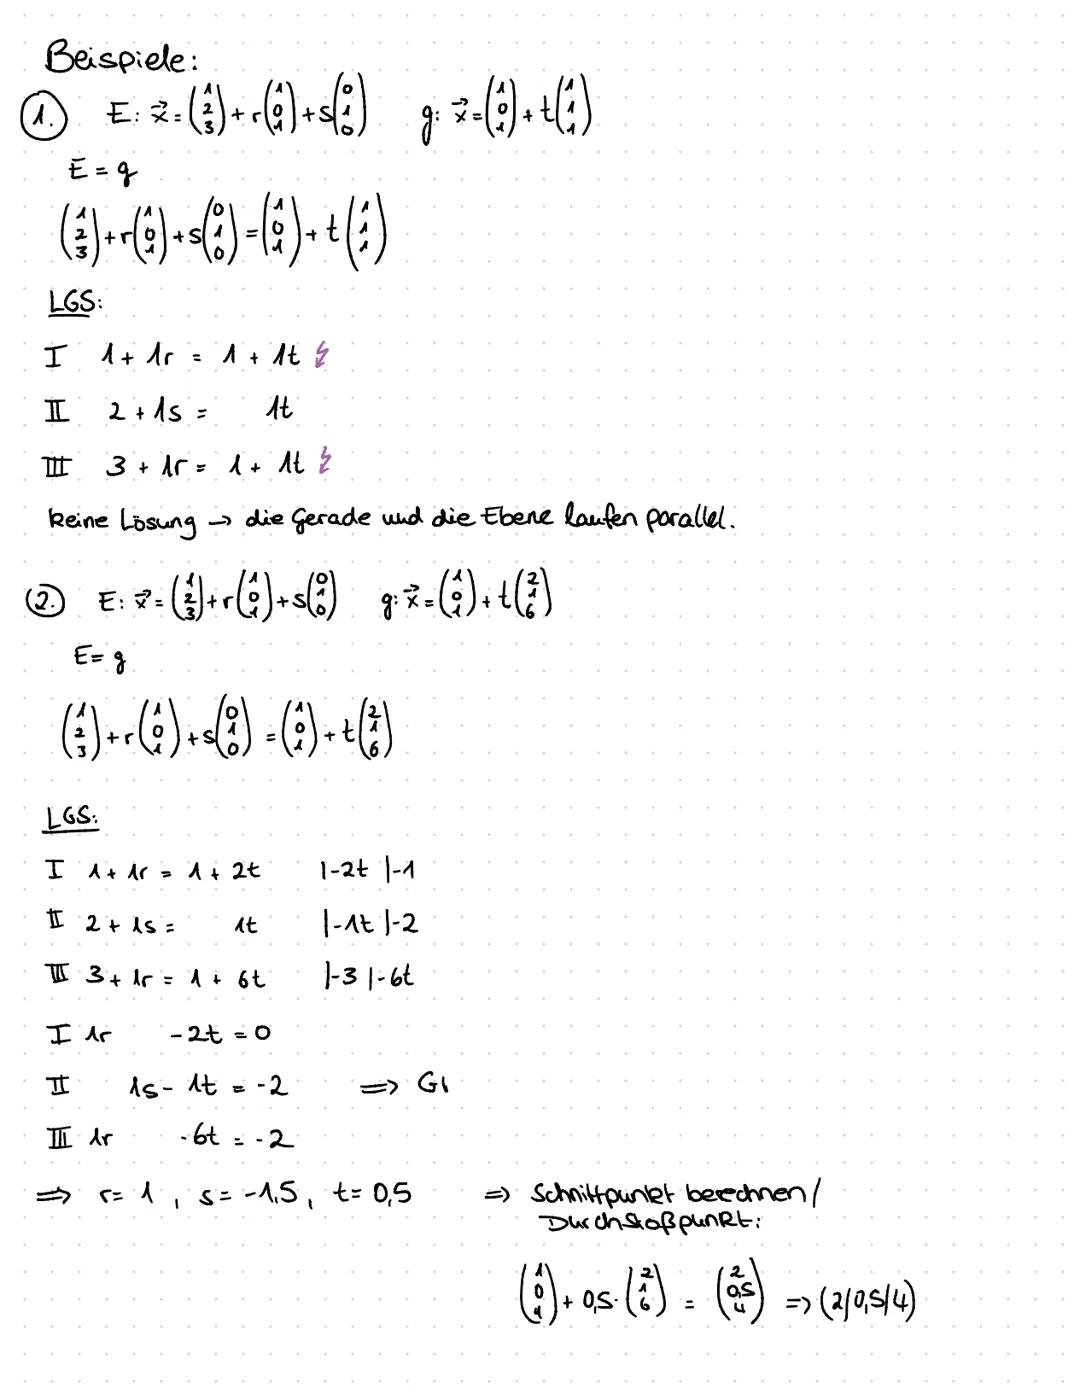 Beispiele:
1. E: x⃗ = (1 2 3) + r(1 0 1) + s(0 1 0) g: x⃗ = (1 0 1) + t(1 1 1)
E = g
(1 2 3) + r(1 0 1) + s(0 1 0) = (1 0 1) + t(1 1 1)
LGS:
I 1 + 1r = 1 + 1t ↯
II 2 + 1s = 1t
III 3 + 1r = 1 + 1t ↯
keine Lösung → die Gerade und die Ebene laufen parallel.
2. E: x⃗ = (1 2 3) + r(1 0 1) + s(0 1 0) g: x⃗ = (1 0 1) + t(2 1 6)
E = g
(1 2 3) + r(1 0 1) + s(0 1 0) = (1 0 1) + t(2 1 6)
LGS:
I 1 + 1r = 1 + 2t |-2t |-1
II 2 + 1s = 1t |-1t |-2
III 3 + 1r = 1 + 6t |-3 |-6t
I 1r -2t = 0
II 1s - 1t = -2 => G1
III 1r -6t = -2
=> r = 1, s = -1,5, t = 0,5 => Schnittpunkt berechnen/
Durchstoßpunkt:
(1 0 1) + 0,5 · (2 1 6) = (2 0,5 4) => (2/0,5/4)